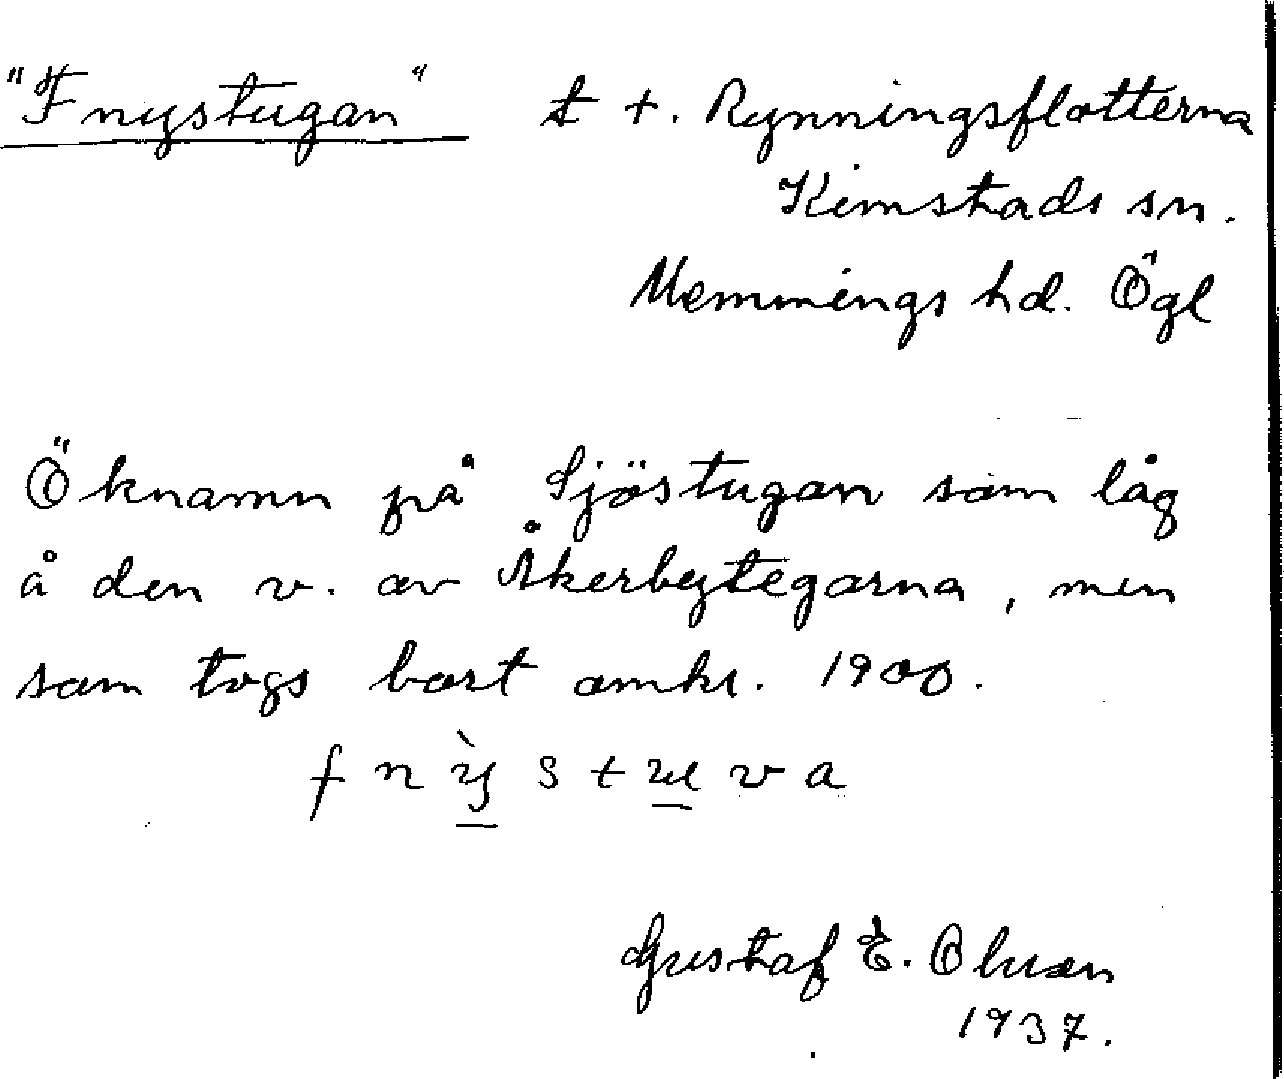 "Fnystugan" t +. Rynningsflotterna
Kimstads sn.
Memmings hd. Ögl
Öknamn på Sjöstugan som låg
å den v. av Åkerbytegarna, men
som togs bort omkr. 1900.
f n ỳ s t u v a
Gustaf E. Olsson
1937.